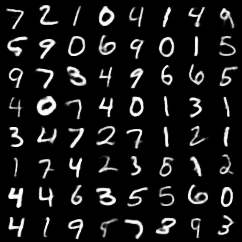 7 2 1 0 4 1 4 9
5 9 0 6 9 0 1 5
9 7 3 4 9 6 6 5
4 0 7 4 0 1 3 1
3 4 7 2 7 1 2 1
1 7 4 2 3 5 1 2
4 4 6 3 5 5 6 0
4 1 9 5 7 8 9 3